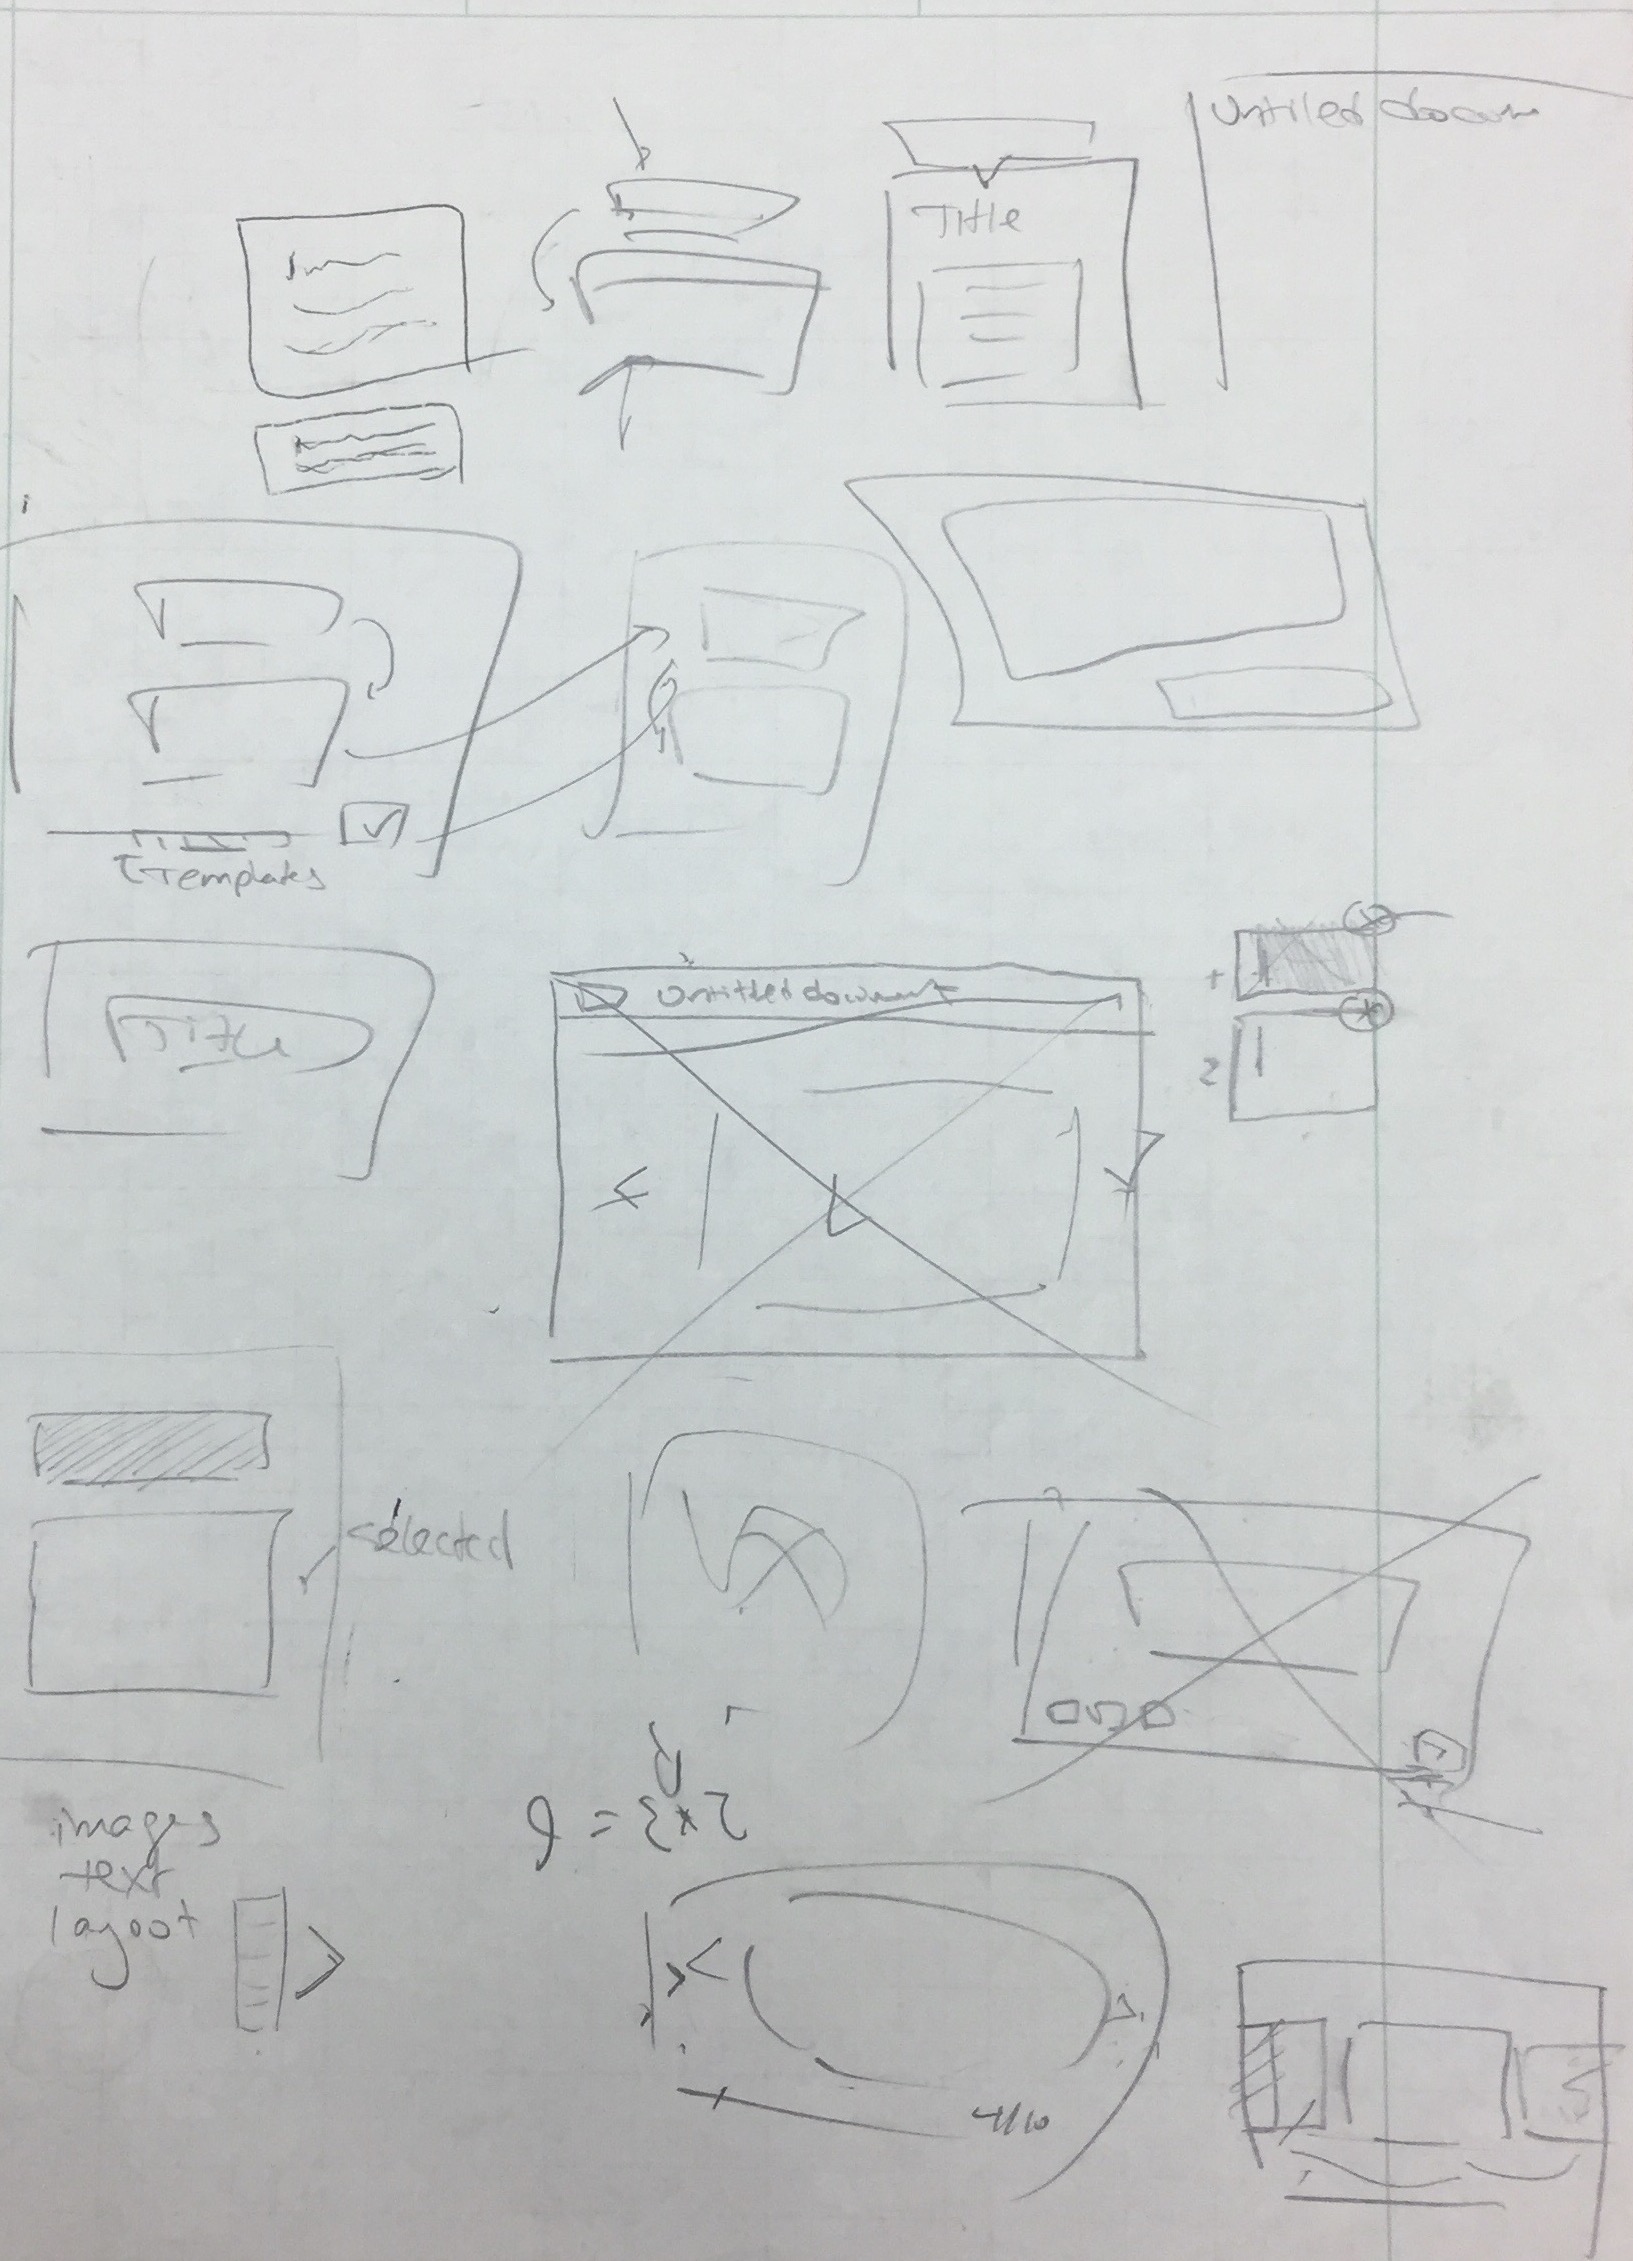 Untiled docum
Title
Templates
Untitled document
Title
1
2
selected
images
text
layoot
4/10